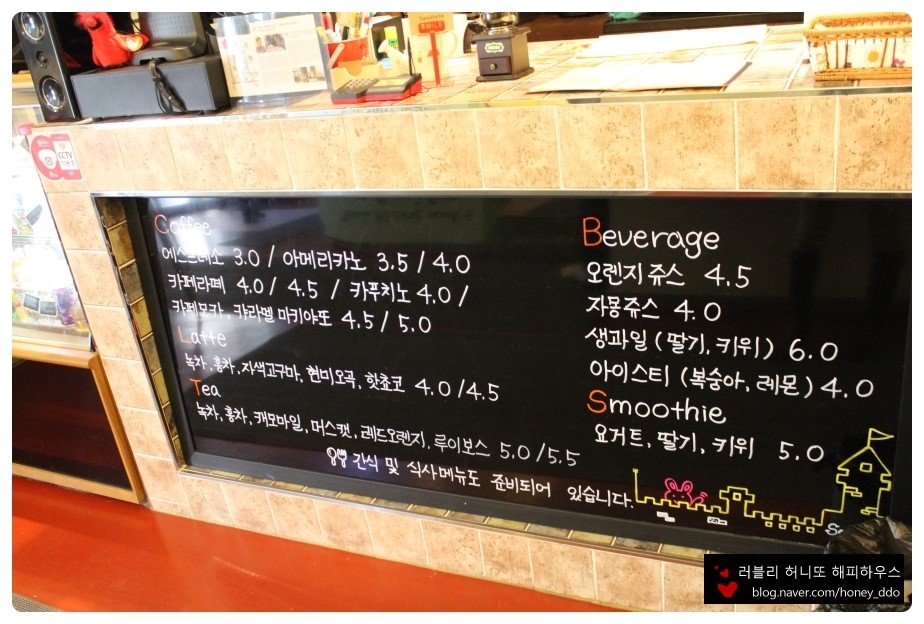 CCTV
Coffee
에스프레소 3.0 / 아메리카노 3.5 / 4.0
카페라떼 4.0 / 4.5 / 카푸치노 4.0 /
카페모카, 카라멜 마키아또 4.5 / 5.0
Latte
녹차, 홍차, 자색고구마, 현미오곡, 핫쵸코 4.0 / 4.5
Tea
녹차, 홍차, 캐모마일, 머스캣, 레드오렌지, 루이보스 5.0 / 5.5
간식 및 식사메뉴도 준비되어 있습니다.
Beverage
오렌지쥬스 4.5
자몽쥬스 4.0
생과일 (딸기, 키위) 6.0
아이스티 (복숭아, 레몬) 4.0
Smoothie
요거트, 딸기, 키위 5.0
러블리 허니또 해피하우스
blog.naver.com/honey_ddo